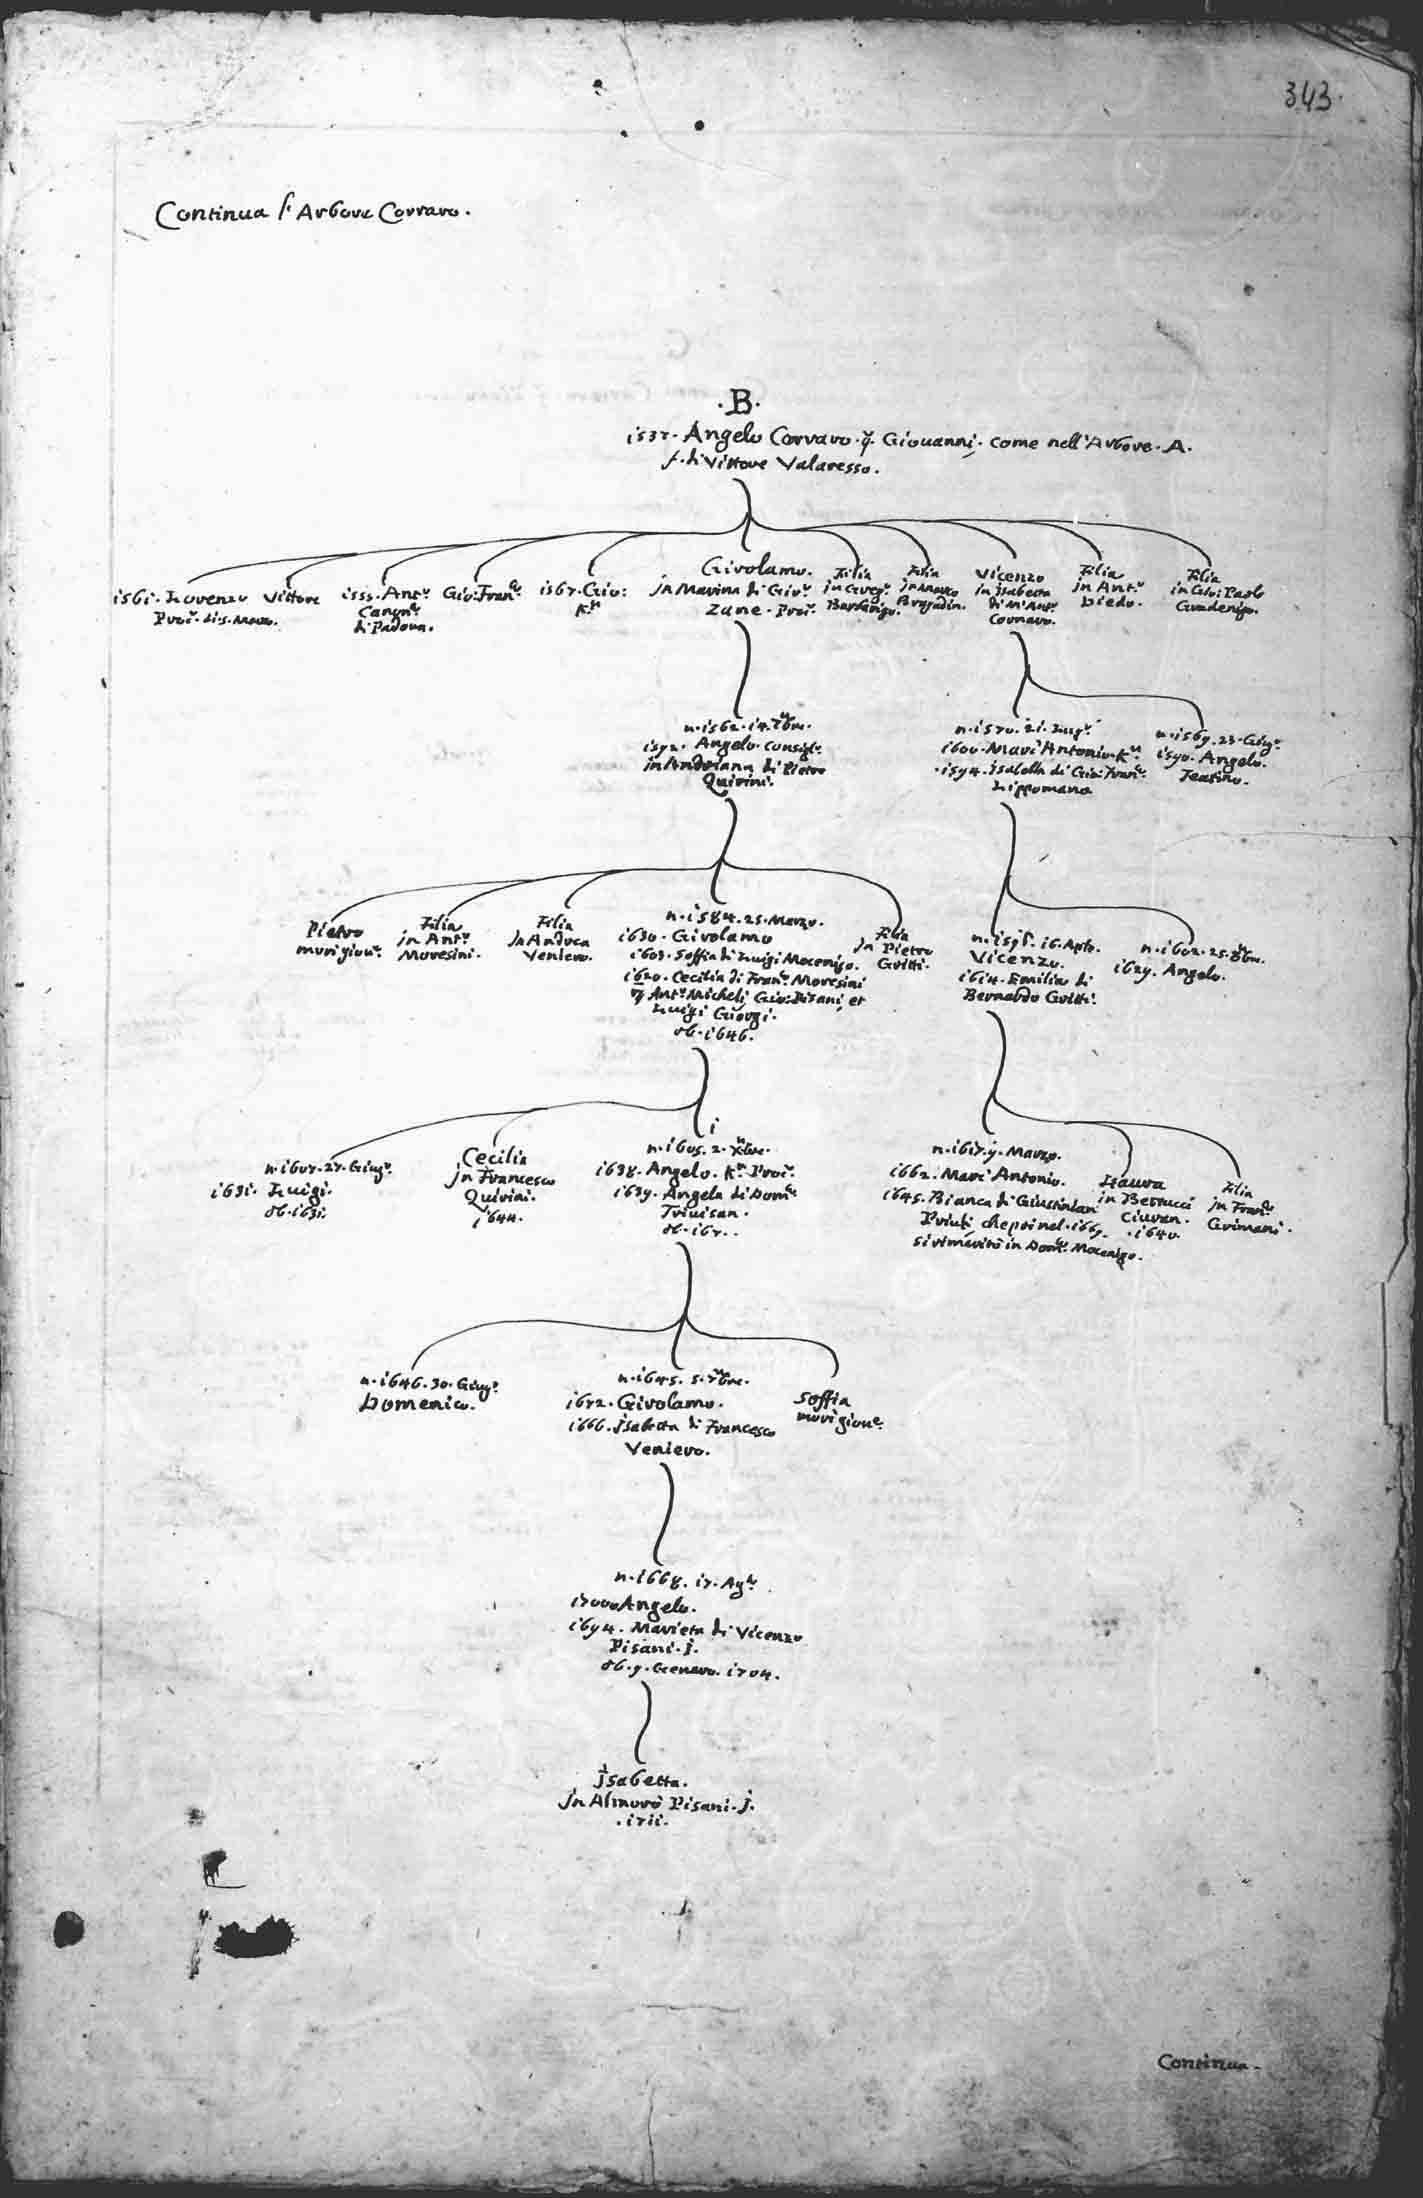 343.
Continua l'Arbore Corraro.
.B.
1537. Angelo Corraro. q. Giouanni. come nell'Arbore. A.
f. di Vittore Valaresso.
1561. Lorenzo
Procr. di S. Marco.
Vittore
1555. Anto.
Canonco.
di Padoua.
Gio: Franco.
1567. Gio:
Kr.
Girolamo.
in Marina di Giro.
Zane. Procr.
Filia
in Gregor.
Barbarigo.
Filia
in Marco
Bragadin.
Vicenzo
in Isabetta
di M. Anto.
Cornaro.
Filia
in Anto.
Diedo.
Filia
in Gio: Paolo
Gradenigo.
n. 1562. 14. 7bre.
1592. Angelo. Consigr.
in Andriana di Pietro
Quirini.
n. 1570. 21. Zugo.
1600. Marc'Antonio. Kr.
.1594. Isabetta di Gio: Franco.
Lippomano
n. 1569. 23. Giugo.
1590. Angelo.
Teatino.
Pietro
morì gioue.
Filia
in Anto.
Moresini.
Filia
in Andrea
Veniero.
n. 1584. 25. Marzo.
1630. Girolamo
1603. Soffia di Luigi Mocenigo.
1620. Cecilia di Franco. Moresini
Anto. Micheli, Gio: Pisani, et
Luigi Giorgi.
ob. 1646.
Filia
in Pietro
Gritti.
16. Aple.
Vicenzo.
1614. Emilia di
Bernardo Gritti.
n. 1602. 25. 8bre.
1629. Angelo.
n. 1607. 27. Giugo.
1631. Luigi.
ob. 1631.
Cecilia
in Francesco
Quirini.
1644.
1
n. 1605. 2. Xbre.
1638. Angelo. Kr. Procr.
1639. Angela di Domco.
Triuisan.
ob. 167..
n. 1617. 9. Marzo.
1662. Marc'Antonio.
1645. Bianca di Giustinian
Priuli che poi nel. 1669.
si rimaritò in Domco. Mocenigo.
Isaura
in Bettucci
Ciuran.
.1640.
Filia
in Franco.
Grimani.
n. 1646. 30. Giugo.
Domenico.
n. 1645. 5. 7bre.
1672. Girolamo.
1666. Isabetta di Francesco
Veniero.
Soffia
morì gioue.
n. 1668. 17. Ago.
1700 Angelo.
1694. Marieta di Vicenzo
Pisani. j.
ob. 9. Genaro. 1704.
Isabetta.
in Almorò Pisani. j.
.1711.
Continua.